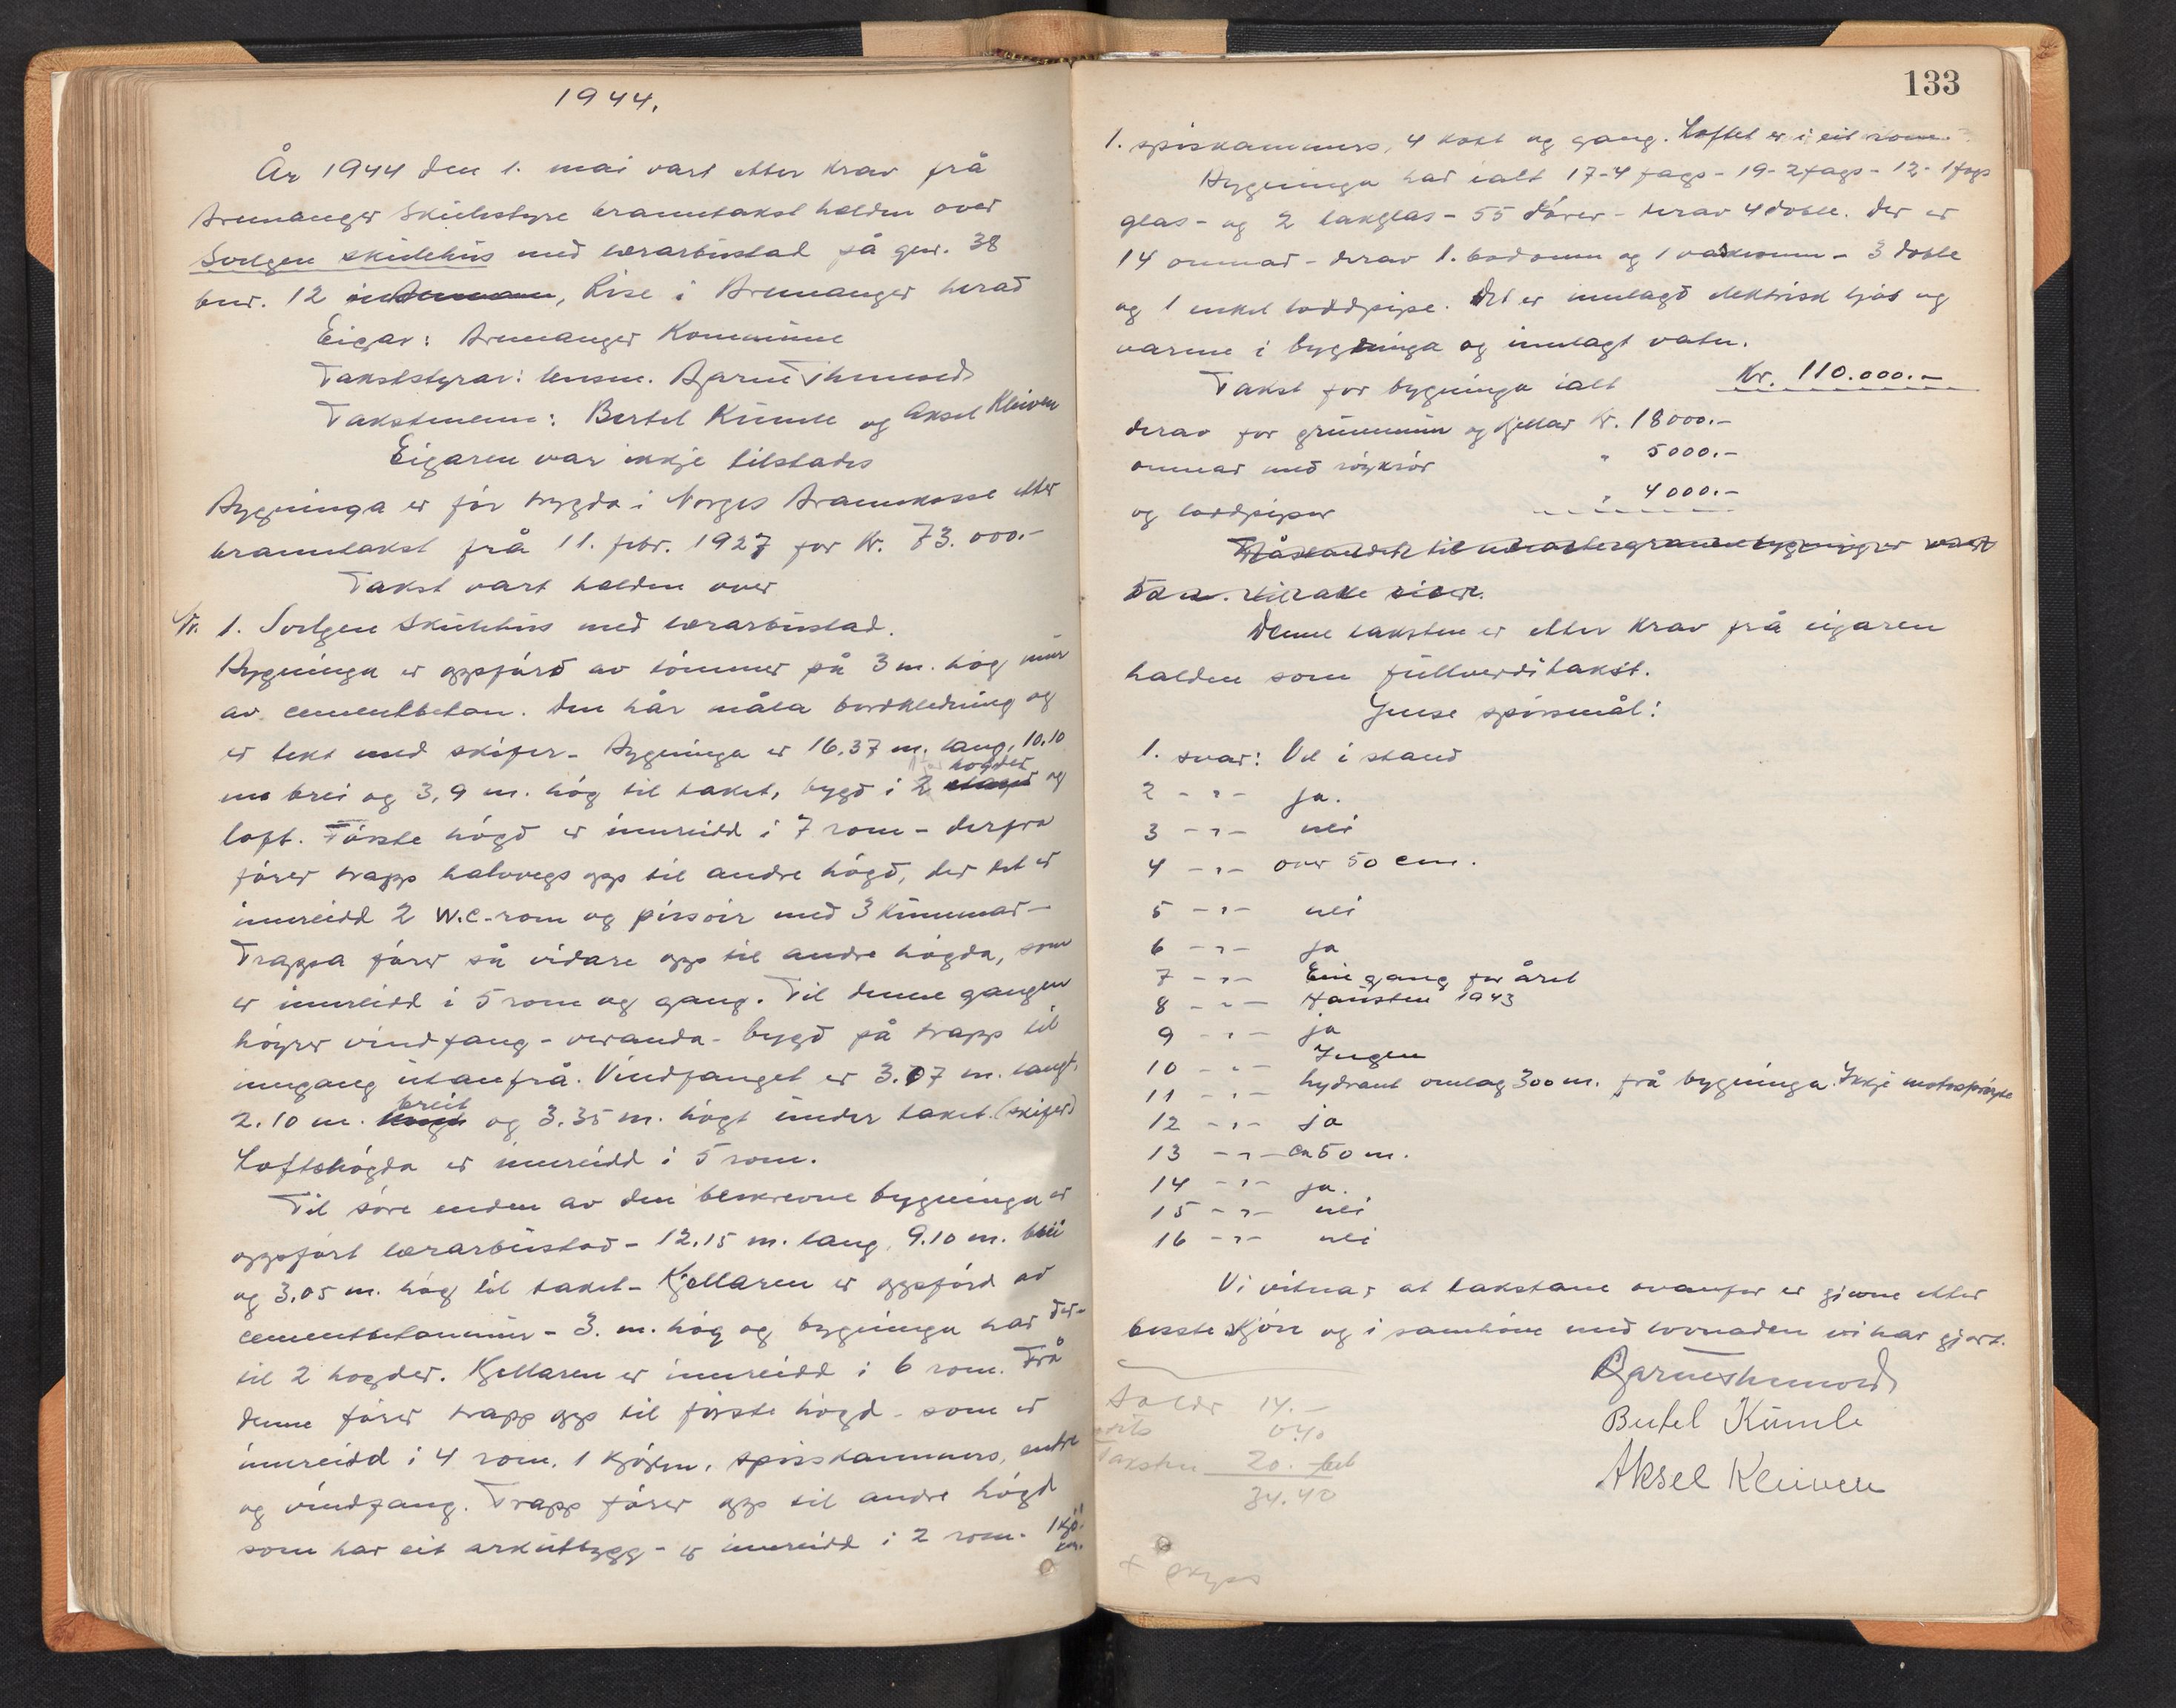 1944.
År 1944 den 1. mai vart etter krav frå
Bremanger Skulestyre branntakst halden over
Svelgen skulehus med lærarbustad på gnr. 38
bnr. 12 Rise i Bremanger herad
Eigar: Bremanger Kommune
Takststyrar: lensm. Bjarne
Takstmenn: Bertel Kumle og Aksel Kleiven
Eigaren var ikkje tilstades
Bygninga er før trygda i Norges Brannkasse etter
branntakst frå 11. febr. 1927 for Kr. 73.000.-
Takst vart halden over
Nr. 1. Svelgen Skulehus med lærarbustad.
Bygninga er oppførd av tømmer på 3 m. høg mur
av cementbeton. Den hår måla bordkledning og
er tekt med skifer - Bygninga er 16.37 m. lang, 10.10
m. brei og 3,9 m. høg til taket, bygd i 2 etager høgder og
loft. Første høgd er innreidd i 7 rom - derfra
fører trapp halvvegs opp til andre høgd, der det er
innreidd 2 W.C-rom og pissoir med 3 kummar -
Trappa fører så vidare opp til andre høgda, som
er innreidd i 5 rom og gang. Til denne gangen
høyrer vindfang - veranda - bygd på trapp til
inngang utanfrå. Vindfanget er 3.07 m. langt,
2.10 m. breit og 3.35 m. høgt under taket. (skifer)
Loftshøgda er innreidd i 5 rom.
Til søre enden av den beskrevne bygninga er
oppført lærarbustad - 12.15 m. lang, 9.10 m. brei
og 3.05 m. høg til taket - Kjellaren er oppførd av
cementbetonmur - 3. m. høg og bygninga har der-
til 2 høgder. Kjellaren er innreidd i 6 rom. Frå
denne fører trapp opp til første høgd - som er
innreidd i 4 rom, 1 kjøken, spisskammers, entre
og vindfang. Trapp fører opp til andre høgd
som har eit arkutbygg - er innreidd i 2 rom. 1 kjø-
ken.
133
1. spiskammers, 4 kott og gang. Loftet er i eit rom.
Bygninga har ialt 17-4 fags - 19-2 fags - 12-1 fags
glas - og 2 takglas - 55 dører - herav 4 doble. Der er
14 omnar - derav 1. badomn og 1 vaskeomn - 3 doble
og 1 enkel loddpipe. Det er innlagd elektrisk ljos og
varme i bygninga og innlagt vatn.
Takst for bygninga ialt Kr. 110.000.-
derav for grunnmur og kjellar Kr. 18000.-
omnar med røykrør " 5000.-
og loddpiper " 4000.-
til alle sider.
Denne taksten er etter krav frå eigaren
halden som fullverditakst.
Ymse spørsmål:
1. svar: Vel i stand
2 - " - ja.
3 - " - nei
4 - " - over 50 cm.
5 - " - nei
6 - " - ja
7 - " - Ein gang for året
8 - " - Hausten 1943
9 - " - ja
10 - " - Ingen
11 - " - hydrant omlag 300 m. frå bygninga. Ikkje motorsprøyte
12 - " - ja
13 - " - ca 50 m.
14 - " - ja.
15 - " - nei
16 - " - nei
Vi vitnar at takstane ovanfor er gjevne etter
beste skjøn og i samhøve med lovnaden vi har gjort.
Bjarne
Bertel Kumle
Aksel Kleiven
14.-
0.40
Takstm 20.-
34.40